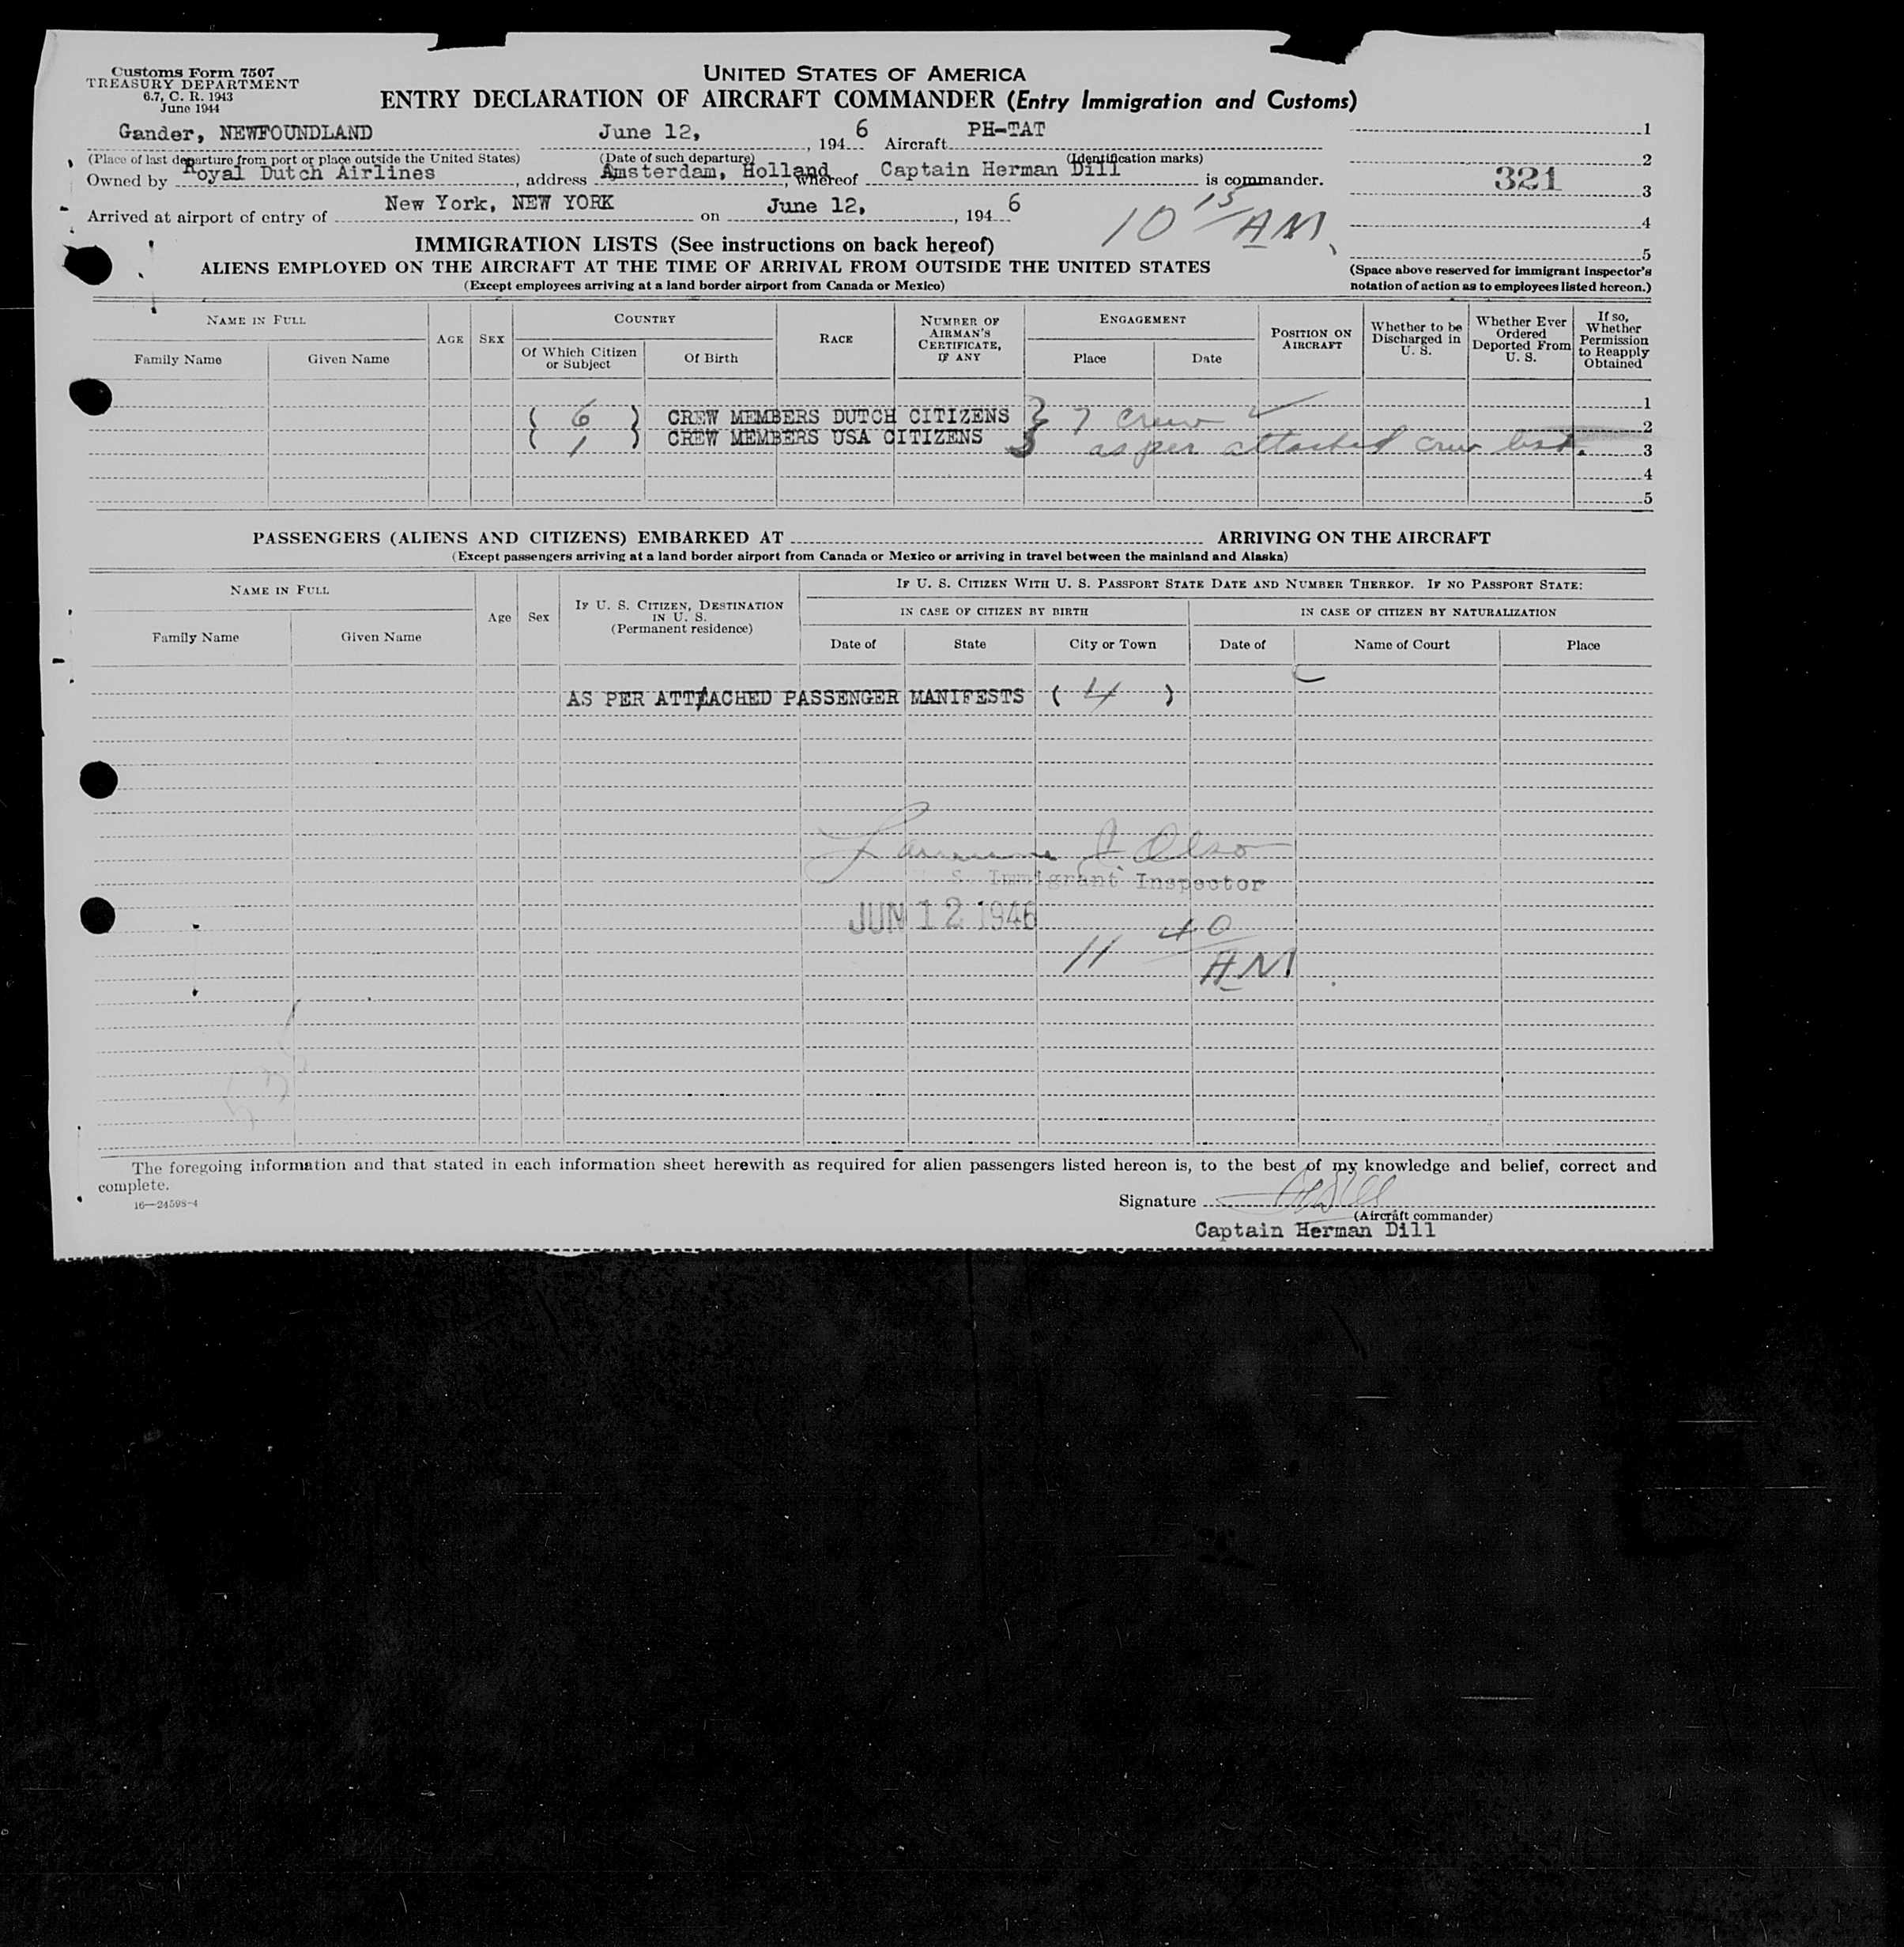 Customs Form 7507
TREASURY DEPARTMENT
6.7, C. R. 1943
June 1944
UNITED STATES OF AMERICA
ENTRY DECLARATION OF AIRCRAFT COMMANDER (Entry Immigration and Customs)
Gander, NEWFOUNDLAND June 12, , 194 6 Aircraft PH-TAT
(Place of last departure from port or place outside the United States) (Date of such departure) (Identification marks)
Owned by Royal Dutch Airlines , address Amsterdam, Holland , whereof Captain Herman Dill is commander.
Arrived at airport of entry of New York, NEW YORK on June 12, , 194 6
10 15 AM
1
2
321
3
4
5
(Space above reserved for immigrant inspector's
notation of action as to employees listed hereon.)
IMMIGRATION LISTS (See instructions on back hereof)
ALIENS EMPLOYED ON THE AIRCRAFT AT THE TIME OF ARRIVAL FROM OUTSIDE THE UNITED STATES
(Except employees arriving at a land border airport from Canada or Mexico)
NAME IN FULL
Family Name Given Name
AGE
SEX
COUNTRY
Of Which Citizen or Subject
Of Birth
RACE
NUMBER OF AIRMAN'S CERTIFICATE, IF ANY
ENGAGEMENT
Place Date
POSITION ON AIRCRAFT
Whether to be Discharged in U. S.
Whether Ever Ordered Deported From U. S.
If so, Whether Permission to Reapply Obtained
1
( 6 ) CREW MEMBERS DUTCH CITIZENS } 7 crew ✓ 2
( 1 ) CREW MEMBERS USA CITIZENS as per attached crew list. 3
4
5
PASSENGERS (ALIENS AND CITIZENS) EMBARKED AT ARRIVING ON THE AIRCRAFT
(Except passengers arriving at a land border airport from Canada or Mexico or arriving in travel between the mainland and Alaska)
NAME IN FULL
Family Name Given Name
Age
Sex
IF U. S. CITIZEN, DESTINATION IN U. S. (Permanent residence)
IF U. S. CITIZEN WITH U. S. PASSPORT STATE DATE AND NUMBER THEREOF. IF NO PASSPORT STATE:
IN CASE OF CITIZEN BY BIRTH IN CASE OF CITIZEN BY NATURALIZATION
Date of State City or Town Date of Name of Court Place
AS PER ATTACHED PASSENGER MANIFESTS ( 4 )
S. Immigrant Inspector
JUN 12 1946
11 40 AM
The foregoing information and that stated in each information sheet herewith as required for alien passengers listed hereon is, to the best of my knowledge and belief, correct and
complete.
16—24598-4
Signature HDill
(Aircraft commander)
Captain Herman Dill